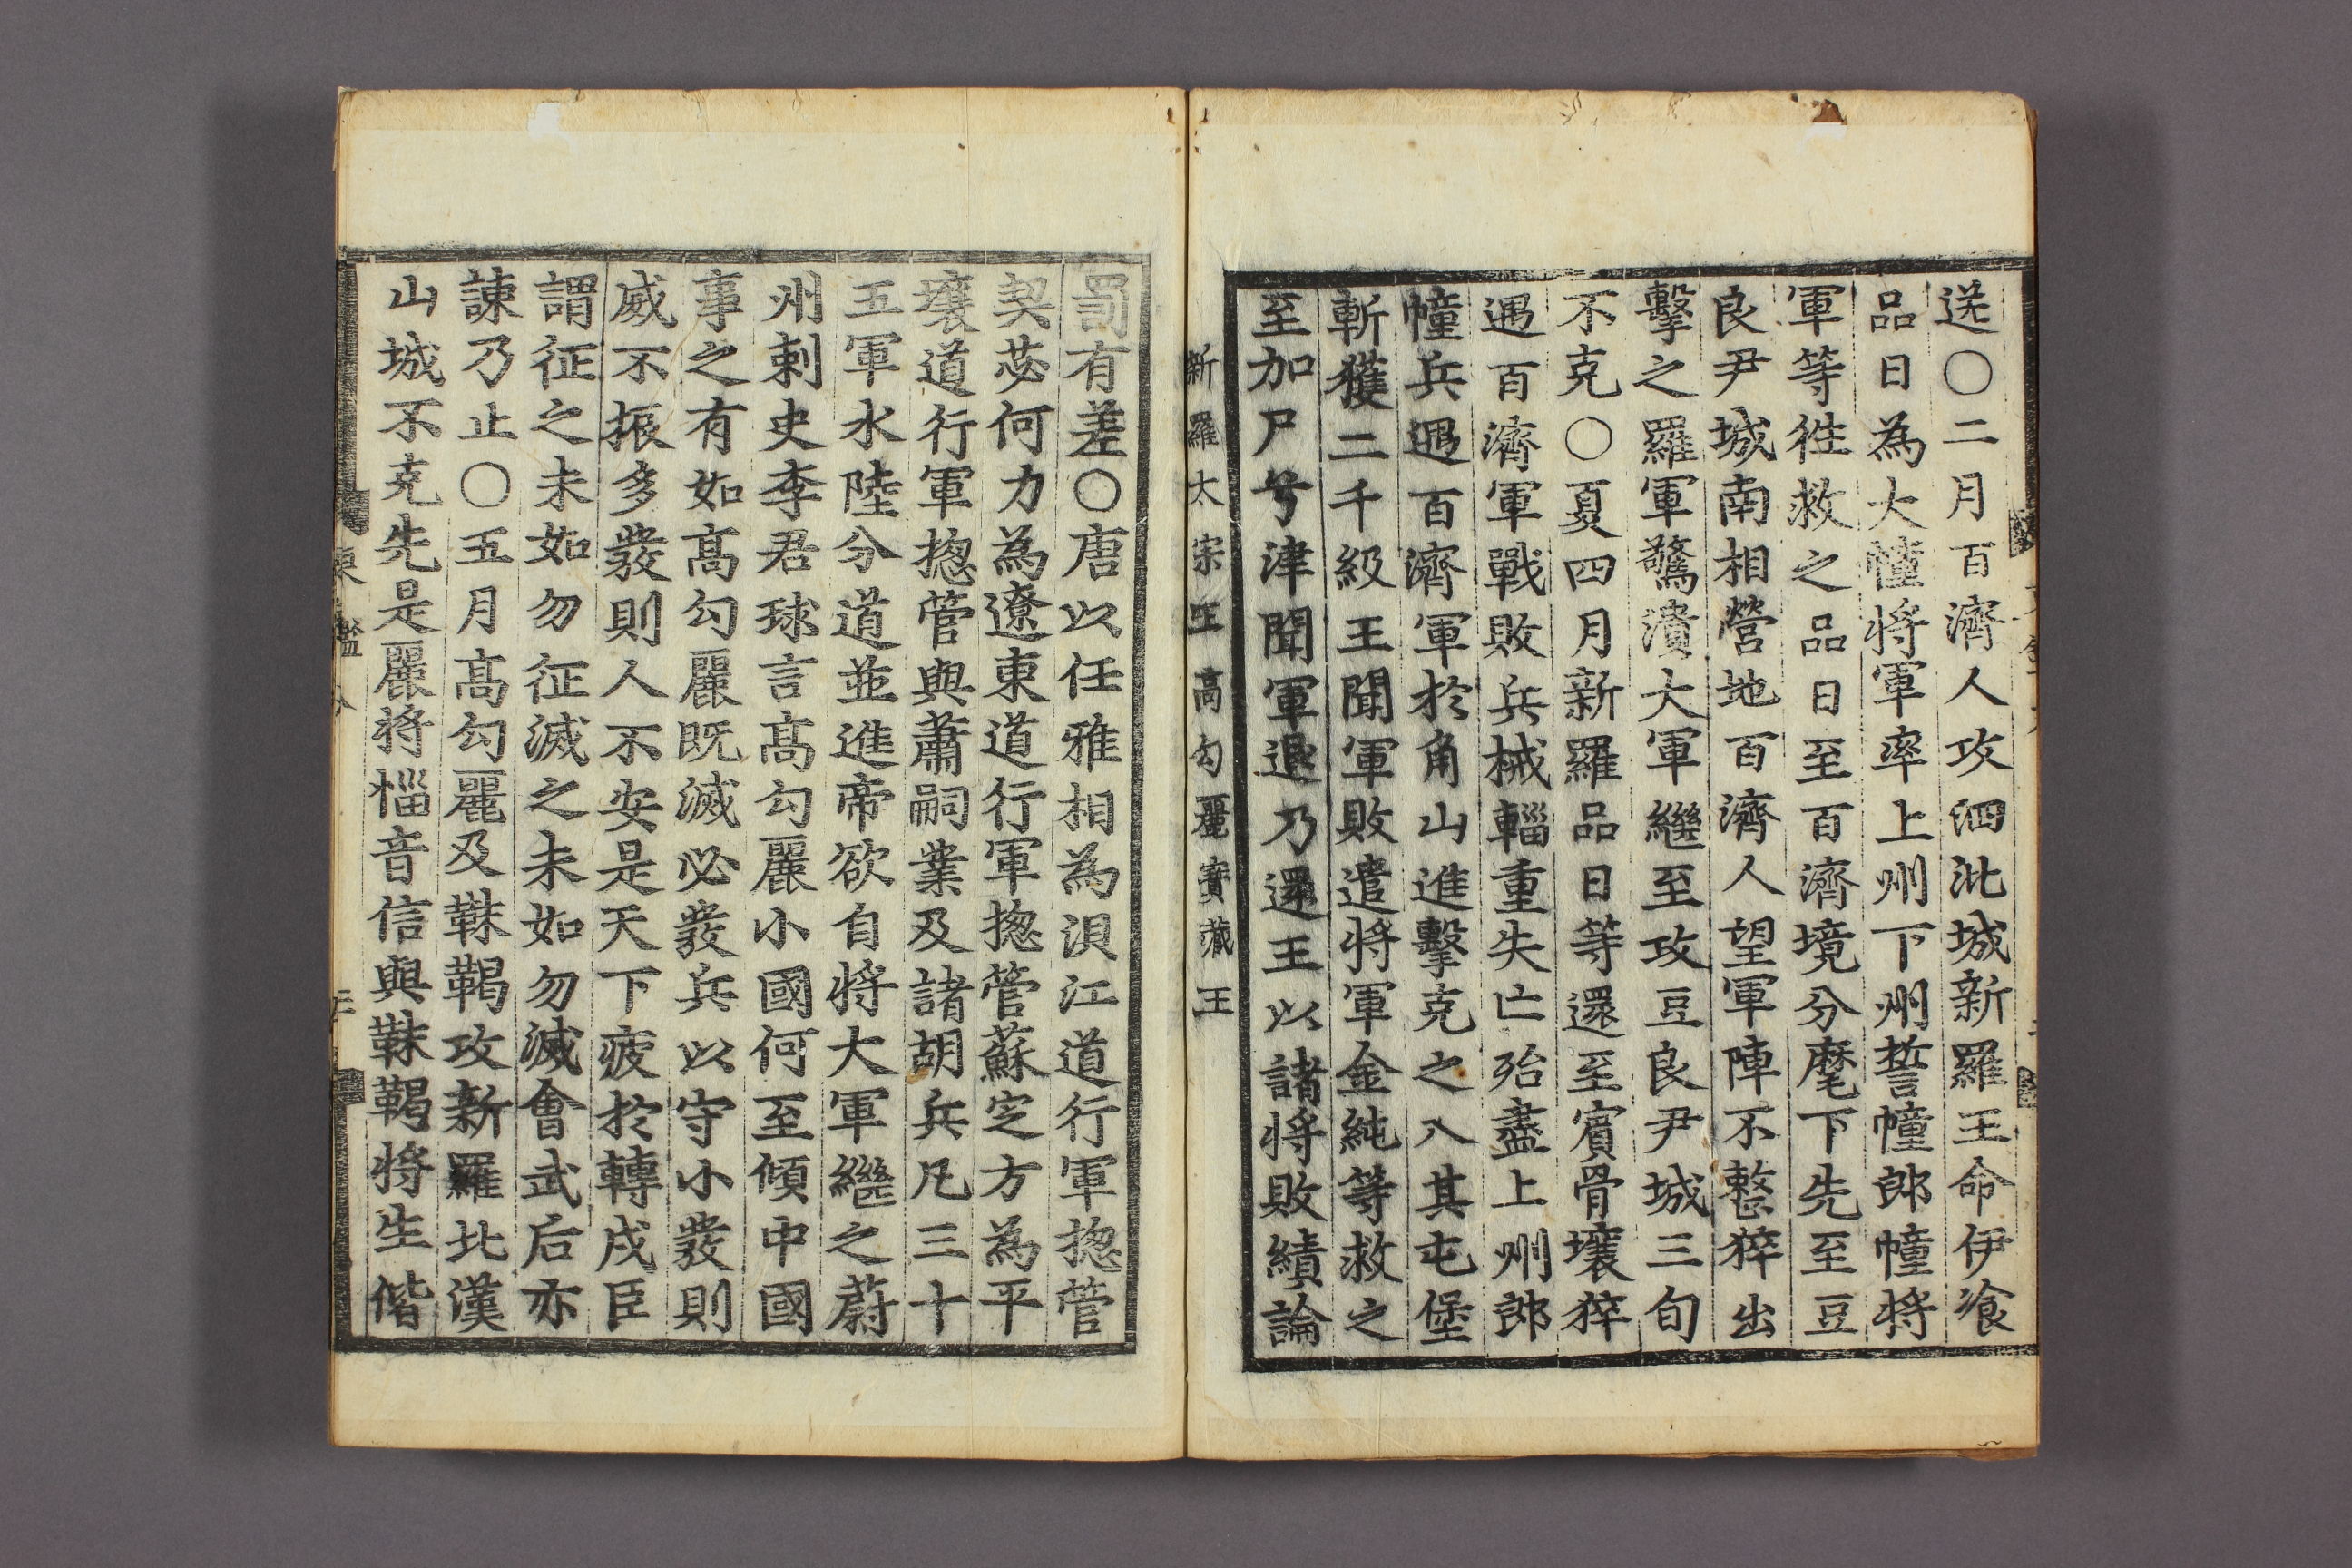 送〇二月百濟人攻泗沘城新羅王命伊飡
品日為大幢将軍率上州下州誓幢郎幢将
軍等徃救之品日至百濟境分麾下先至豆
良尹城南相營地百濟人望軍陣不整猝出
擊之羅軍驚潰大軍繼至攻豆良尹城三旬
不克〇夏四月新羅品日等還至賓骨壤猝
遇百濟軍戰敗兵械輜重失亡殆盡上州郎
幢兵遇百濟軍於角山進擊克之入其屯堡
斬獲二千級王聞軍敗遣将軍金純等救之
至加尸兮津聞軍退乃還王以諸将敗績論
新羅太宗王高勾麗寶藏王
罰有差〇唐以任雅相為浿江道行軍揔管
契苾何力為遼東道行軍揔管蘇㝎方為平
壤道行軍揔管與蕭嗣業及諸胡兵凡三十
五軍水陸分道並進帝欲自将大軍繼之蔚
州刺史李君球言高勾麗小國何至傾中國
事之有如高勾麗既滅必發兵以守小發則
威不振多發則人不安是天下疲於轉戍臣
謂征之未如勿征滅之未如勿滅會武后亦
諫乃止〇五月高勾麗及靺鞨攻新羅北漢
山城不克先是麗将惱音信與靺鞨将生偕